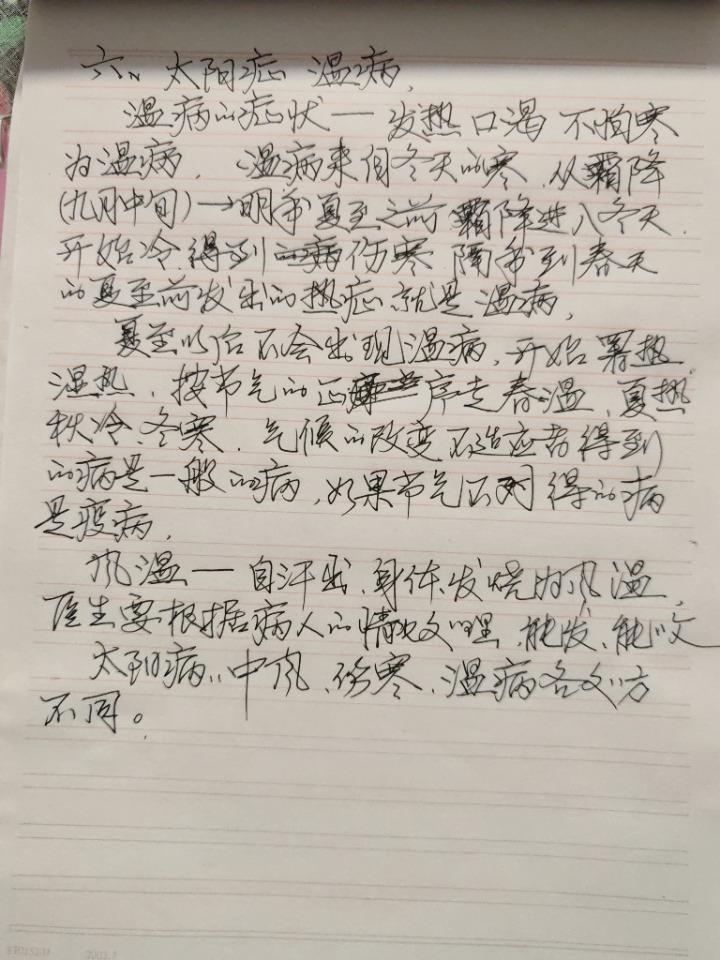 六、太阳症 温病,
温病的症状——发热口渴不怕寒
为温病.温病来自冬天的寒.从霜降
(九月中旬)→明年夏至之前 霜降进入冬天.
开始冷.得到的病伤寒 隔年到春天
的夏至前发出的热症就是温病,
夏至以后不会出现温病,开始暑热.
湿热.按节气的正 序走春温、夏热
秋冷、冬寒.气候的改变不适应者得到
的病是一般的病,如果节气不对得的病
是疫病,
风温——自汗出、身体发烧为风温,
医生要根据病人的情况处理、能发、能收
太阳病,中风、伤寒、温病各处方
不同。